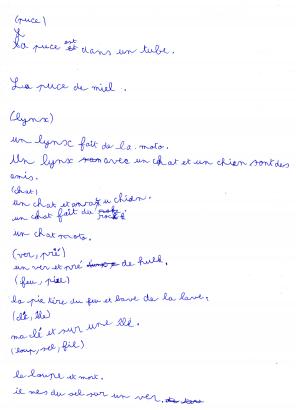 (puce)
La puce est dans un tube.
La puce de miel.
(lynx)
un lynx fait de la moto.
Un lynx avec un chat et un chien sont des
amis.
(chat)
un chat et un chien.
un chat fait du rock
un chat moto.
(ver, pré)
un ver et pré de hulk.
(feu, pie)
la pie tire du feu et bave de la lave.
(clé, île)
ma clé et sur une île.
(loup, sel, fil)
le loup et mort.
il mes du sel sur un ver.